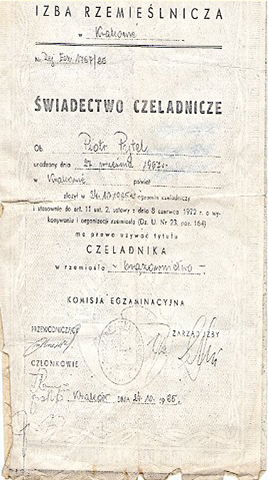 IZBA RZEMIEŚLNICZA
w Krakowie
Nr Rej. Egz. 1767/85
ŚWIADECTWO CZELADNICZE
Ob. Piotr Pytel
urodzony dnia 22 września 1967 r.
w Krakowie powiat
złożył w 24.10.1985 r. egzamin czeladniczy
i stosownie do art. 11 ust. 2, ustawy z dnia 8 czerwca 1972 r. o wy-
konywaniu i organizacji rzemiosła (Dz. U. Nr 23, poz. 164)
ma prawo używać tytułu
CZELADNIKA
w rzemiośle - brązownictwo -
KOMISJA EGZAMINACYJNA
PRZEWODNICZĄCY ZARZĄD IZBY
CZŁONKOWIE
Kraków DNIA 24.10.1985 r.